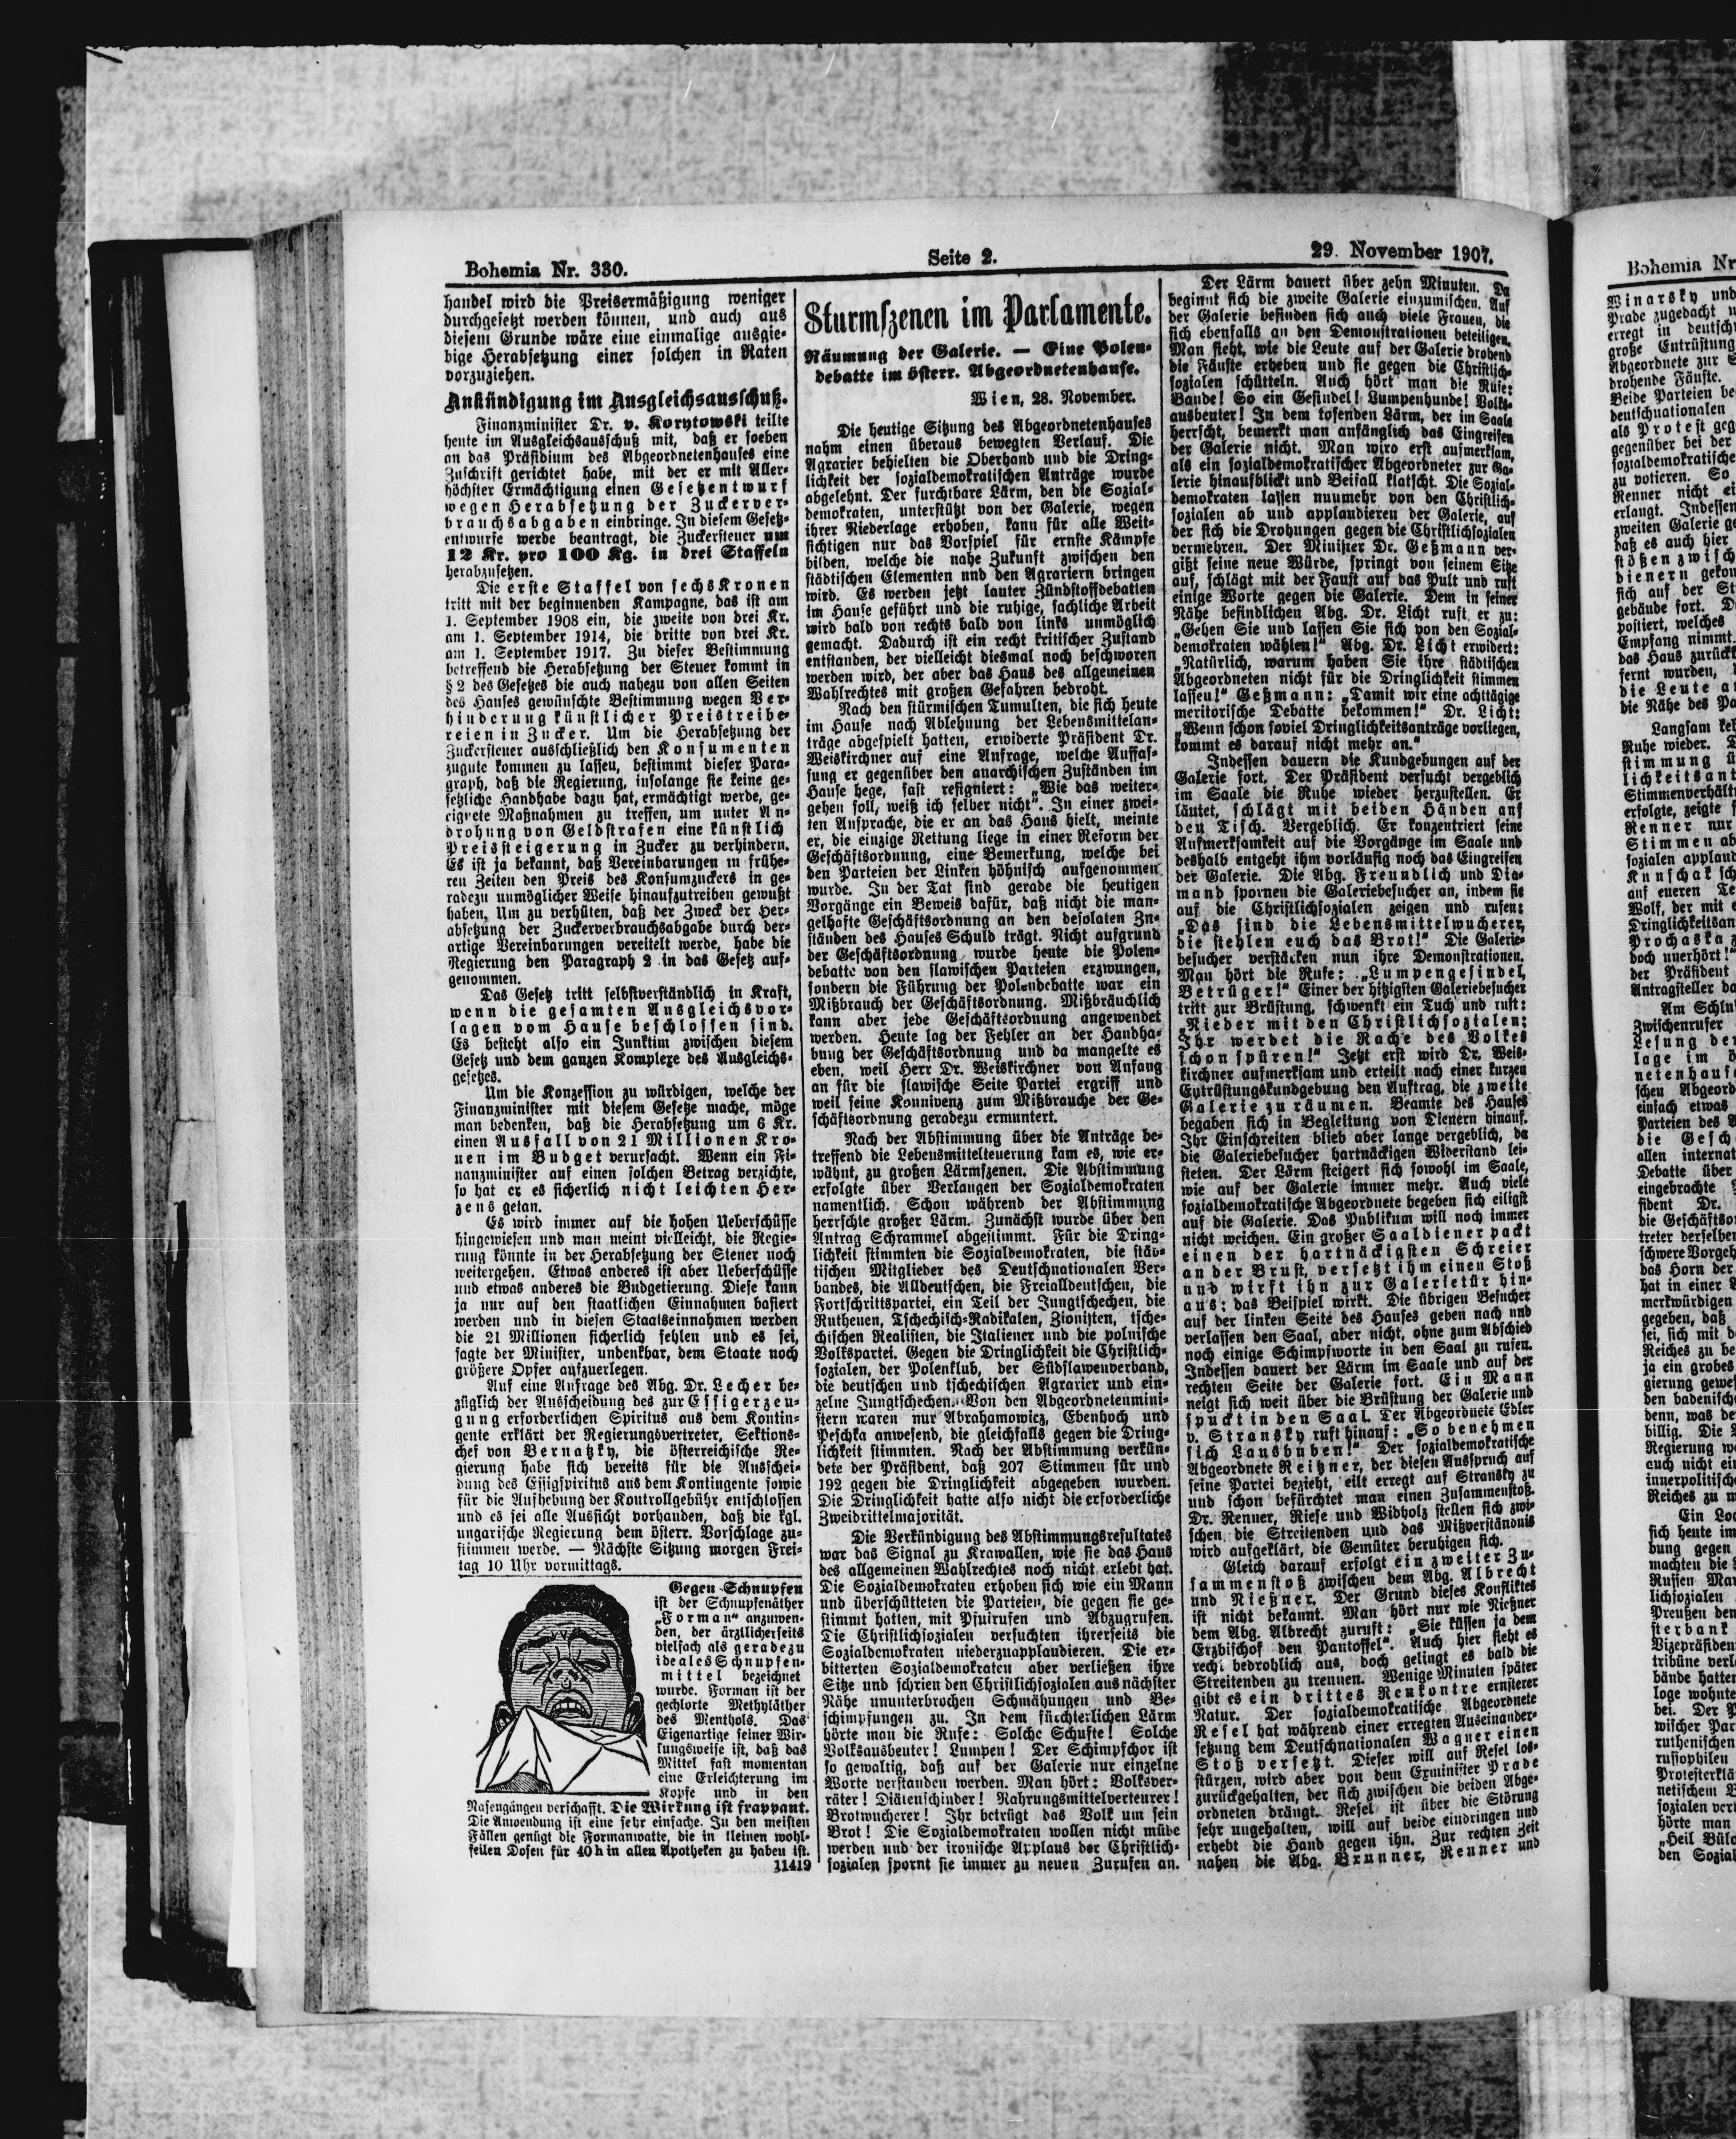 Bohemia Nr. 330.
Seite 2.
29. November 1907.
handel wird die Preisermäßigung weniger
durchgesetzt werden können, und auch aus
diesem Grunde wäre eine einmalige ausgie-
bige Herabsetzung einer solchen in Raten
vorzuziehen.
Ankündigung im Ausgleichsausschuß.
Finanzminister Dr. v. Korytowski teilte
heute im Ausgleichsausschuß mit, daß er soeben
an das Präsidium des Abgeordnetenhauses eine
Zuschrift gerichtet habe, mit der er mit Aller-
höchster Ermächtigung einen Gesetzentwurf
wegen Herabsetzung der Zuckerver-
brauchsabgaben einbringe. In diesem Gesetz-
entwurfe werde beantragt, die Zuckersteuer um
12 Kr. pro 100 Kg. in drei Staffeln
herabzusetzen.
Die erste Staffel von sechs Kronen
tritt mit der beginnenden Kampagne, das ist am
1. September 1908 ein, die zweite von drei Kr.
am 1. September 1914, die dritte von drei Kr.
am 1. September 1917. Zu dieser Bestimmung
betreffend die Herabsetzung der Steuer kommt in
§ 2 des Gesetzes die auch nahezu von allen Seiten
des Hauses gewünschte Bestimmung wegen Ver-
hinderung künstlicher Preistreibe-
reien in Zucker. Um die Herabsetzung der
Zuckersteuer ausschließlich den Konsumenten
zugute kommen zu lassen, bestimmt dieser Para-
graph, daß die Regierung, insolange sie keine ge-
setzliche Handhabe dazu hat, ermächtigt werde, ge-
eignete Maßnahmen zu treffen, um unter An-
drohung von Geldstrafen eine künstlich
Preissteigerung in Zucker zu verhindern.
Es ist ja bekannt, daß Vereinbarungen in frühe-
ren Zeiten den Preis des Konsumzuckers in ge-
radezu unmöglicher Weise hinaufzutreiben gewußt
haben. Um zu verhüten, daß der Zweck der Her-
absetzung der Zuckerverbrauchsabgabe durch der-
artige Vereinbarungen vereitelt werde, habe die
Regierung den Paragraph 2 in das Gesetz auf-
genommen.
Das Gesetz tritt selbstverständlich in Kraft,
wenn die gesamten Ausgleichsvor-
lagen vom Hause beschlossen sind.
Es besteht also ein Junktim zwischen diesem
Gesetz und dem ganzen Komplexe des Ausgleichs-
gesetzes.
Um die Konzession zu würdigen, welche der
Finanzminister mit diesem Gesetze mache, möge
man bedenken, daß die Herabsetzung um 6 Kr.
einen Ausfall von 21 Millionen Kro-
nen im Budget verursacht. Wenn ein Fi-
nanzminister auf einen solchen Betrag verzichte,
so hat er es sicherlich nicht leichten Her-
zens getan.
Es wird immer auf die hohen Ueberschüsse
hingewiesen und man meint vielleicht, die Regie-
rung könnte in der Herabsetzung der Steuer noch
weitergehen. Etwas anderes ist aber Ueberschüsse
und etwas anderes die Budgetierung. Diese kann
ja nur auf den staatlichen Einnahmen basiert
werden und in diesen Staatseinnahmen werden
die 21 Millionen sicherlich fehlen und es sei,
sagte der Minister, undenkbar, dem Staate noch
größere Opfer aufzuerlegen.
Auf eine Anfrage des Abg. Dr. Lecher be-
züglich der Ausscheidung des zur Essigerzeu-
gung erforderlichen Spiritus aus dem Kontin-
gente erklärt der Regierungsvertreter, Sektions-
chef von Bernatzky, die österreichische Re-
gierung habe sich bereits für die Ausschei-
dung des Essigspiritus aus dem Kontingente sowie
für die Aufhebung der Kontrollgebühr entschlossen
und es sei alle Aussicht vorhanden, daß die kgl.
ungarische Regierung dem österr. Vorschlage zu-
stimmen werde. — Nächste Sitzung morgen Frei-
tag 10 Uhr vormittags.
Gegen Schnupfen
ist der Schnupfenäther
„Forman“ anzuwen-
den, der ärztlicherseits
vielfach als geradezu
ideales Schnupfen-
mittel bezeichnet
wurde. Forman ist der
gechlorte Methyläther
des Menthols. Das
Eigenartige seiner Wir-
kungsweise ist, daß das
Mittel fast momentan
eine Erleichterung im
Kopfe und in den
Nasengängen verschafft. Die Wirkung ist frappant.
Die Anwendung ist eine sehr einfache. In den meisten
Fällen genügt die Formanwatte, die in kleinen wohl-
feilen Dosen für 40 h in allen Apotheken zu haben ist.
11419
Sturmszenen im Parlamente.
Räumung der Galerie. — Eine Polen-
debatte im österr. Abgeordnetenhause.
Wien, 28. November.
Die heutige Sitzung des Abgeordnetenhauses
nahm einen überaus bewegten Verlauf. Die
Agrarier behielten die Oberhand und die Dring-
lichkeit der sozialdemokratischen Anträge wurde
abgelehnt. Der furchtbare Lärm, den die Sozial-
demokraten, unterstützt von der Galerie, wegen
ihrer Niederlage erhoben, kann für alle Weit-
sichtigen nur das Vorspiel für ernste Kämpfe
bilden, welche die nahe Zukunft zwischen den
städtischen Elementen und den Agrariern bringen
wird. Es werden jetzt lauter Zündstoffdebatten
im Hause geführt und die ruhige, sachliche Arbeit
wird bald von rechts bald von links unmöglich
gemacht. Dadurch ist ein recht kritischer Zustand
entstanden, der vielleicht diesmal noch beschworen
werden wird, der aber das Haus des allgemeinen
Wahlrechtes mit großen Gefahren bedroht.
Nach den stürmischen Tumulten, die sich heute
im Hause nach Ablehnung der Lebensmittelan-
träge abgespielt hatten, erwiderte Präsident Dr.
Weiskirchner auf eine Anfrage, welche Auffas-
sung er gegenüber den anarchischen Zuständen im
Hause hege, fast resigniert: „Wie das weiter-
gehen soll, weiß ich selber nicht“. In einer zwei-
ten Ansprache, die er an das Haus hielt, meinte
er, die einzige Rettung liege in einer Reform der
Geschäftsordnung, eine Bemerkung, welche bei
den Parteien der Linken höhnisch aufgenommen
wurde. In der Tat sind gerade die heutigen
Vorgänge ein Beweis dafür, daß nicht die man-
gelhafte Geschäftsordnung an den desolaten Zu-
ständen des Hauses Schuld trägt. Nicht aufgrund
der Geschäftsordnung wurde heute die Polen-
debatte von den slawischen Parteien erzwungen,
sondern die Führung der Polendebatte war ein
Mißbrauch der Geschäftsordnung. Mißbräuchlich
kann aber jede Geschäftsordnung angewendet
werden. Heute lag der Fehler an der Handha-
bung der Geschäftsordnung und da mangelte es
eben, weil Herr Dr. Weiskirchner von Anfang
an für die slawische Seite Partei ergriff und
weil seine Konnivenz zum Mißbrauche der Ge-
schäftsordnung geradezu ermuntert.
Nach der Abstimmung über die Anträge be-
treffend die Lebensmittelteuerung kam es, wie er-
wähnt, zu großen Lärmszenen. Die Abstimmung
erfolgte über Verlangen der Sozialdemokraten
namentlich. Schon während der Abstimmung
herrschte großer Lärm. Zunächst wurde über den
Antrag Schrammel abgestimmt. Für die Dring-
lichkeit stimmten die Sozialdemokraten, die städ-
tischen Mitglieder des Deutschnationalen Ver-
bandes, die Alldeutschen, die Freialldeutschen, die
Fortschrittspartei, ein Teil der Jungtschechen, die
Ruthenen, Tschechisch-Radikalen, Zionisten, tsche-
chischen Realisten, die Italiener und die polnische
Volkspartei. Gegen die Dringlichkeit die Christlich-
sozialen, der Polenklub, der Südslawenverband,
die deutschen und tschechischen Agrarier und ein-
zelne Jungtschechen. Von den Abgeordnetenmini-
stern waren nur Abrahamowicz, Ebenhoch und
Peschka anwesend, die gleichfalls gegen die Dring-
lichkeit stimmten. Nach der Abstimmung verkün-
dete der Präsident, daß 207 Stimmen für und
192 gegen die Dringlichkeit abgegeben wurden.
Die Dringlichkeit hatte also nicht die erforderliche
Zweidrittelmajorität.
Die Verkündigung des Abstimmungsresultates
war das Signal zu Krawallen, wie sie das Haus
des allgemeinen Wahlrechtes noch nicht erlebt hat.
Die Sozialdemokraten erhoben sich wie ein Mann
und überschütteten die Parteien, die gegen sie ge-
stimmt hatten, mit Pfuirufen und Abzugrufen.
Die Christlichsozialen versuchten ihrerseits die
Sozialdemokraten niederzuapplaudieren. Die er-
bitterten Sozialdemokraten aber verließen ihre
Sitze und schrien den Christlichsozialen aus nächster
Nähe ununterbrochen Schmähungen und Be-
schimpfungen zu. In dem fürchterlichen Lärm
hörte man die Rufe: Solche Schufte! Solche
Volksausbeuter! Lumpen! Der Schimpfchor ist
so gewaltig, daß auf der Galerie nur einzelne
Worte verstanden werden. Man hört: Volksver-
räter! Diätenschinder! Nahrungsmittelverteurer!
Brotwucherer! Ihr betrügt das Volk um sein
Brot! Die Sozialdemokraten wollen nicht müde
werden und der ironische Applaus der Christlich-
sozialen spornt sie immer zu neuen Zurufen an.
Der Lärm dauert über zehn Minuten. Da
beginnt sich die zweite Galerie einzumischen. Auf
der Galerie befinden sich auch viele Frauen, die
sich ebenfalls an den Demonstrationen beteiligen.
Man sieht, wie die Leute auf der Galerie drohend
die Fäuste erheben und sie gegen die Christlich-
sozialen schütteln. Auch hört man die Rufe:
Bande! So ein Gesindel! Lumpenhunde! Volks-
ausbeuter! In dem tosenden Lärm, der im Saale
herrscht, bemerkt man anfänglich das Eingreifen
der Galerie nicht. Man wird erst aufmerksam,
als ein sozialdemokratischer Abgeordneter zur Ga-
lerie hinaufblickt und Beifall klatscht. Die Sozial-
demokraten lassen nunmehr von den Christlich-
sozialen ab und applaudieren der Galerie, auf
der sich die Drohungen gegen die Christlichsozialen
vermehren. Der Minister Dr. Geßmann ver-
gißt seine neue Würde, springt von seinem Sitze
auf, schlägt mit der Faust auf das Pult und ruft
einige Worte gegen die Galerie. Dem in seiner
Nähe befindlichen Abg. Dr. Licht ruft er zu:
„Gehen Sie und lassen Sie sich von den Sozial-
demokraten wählen!“ Abg. Dr. Licht erwidert:
„Natürlich, warum haben Sie ihre städtischen
Abgeordneten nicht für die Dringlichkeit stimmen
lassen!“ Geßmann: „Damit wir eine achttägige
meritorische Debatte bekommen!“ Dr. Licht:
„Wenn schon soviel Dringlichkeitsanträge vorliegen,
kommt es darauf nicht mehr an.“
Indessen dauern die Kundgebungen auf der
Galerie fort. Der Präsident versucht vergeblich
im Saale die Ruhe wieder herzustellen. Er
läutet, schlägt mit beiden Händen auf
den Tisch. Vergeblich. Er konzentriert seine
Aufmerksamkeit auf die Vorgänge im Saale und
deshalb entgeht ihm vorläufig noch das Eingreifen
der Galerie. Die Abg. Freundlich und Dia-
mand spornen die Galeriebesucher an, indem sie
auf die Christlichsozialen zeigen und rufen:
„Das sind die Lebensmittelwucherer,
die stehlen euch das Brot!“ Die Galerie-
besucher verstärken nun ihre Demonstrationen.
Man hört die Rufe: „Lumpengesindel,
Betrüger!“ Einer der hitzigsten Galeriebesucher
tritt zur Brüstung, schwenkt ein Tuch und ruft:
„Nieder mit den Christlichsozialen;
Ihr werdet die Rache des Volkes
schon spüren!“ Jetzt erst wird Dr. Weis-
kirchner aufmerksam und erteilt nach einer kurzen
Entrüstungskundgebung den Auftrag, die zweite
Galerie zu räumen. Beamte des Hauses
begaben sich in Begleitung von Dienern hinauf.
Ihr Einschreiten blieb aber lange vergeblich, da
die Galeriebesucher hartnäckigen Widerstand lei-
steten. Der Lärm steigert sich sowohl im Saale,
wie auf der Galerie immer mehr. Auch viele
sozialdemokratische Abgeordnete begeben sich eiligst
auf die Galerie. Das Publikum will noch immer
nicht weichen. Ein großer Saaldiener packt
einen der hartnäckigsten Schreier
an der Brust, versetzt ihm einen Stoß
und wirft ihn zur Galerietür hin-
aus; das Beispiel wirkt. Die übrigen Besucher
auf der linken Seite des Hauses gehen nach und
verlassen den Saal, aber nicht, ohne zum Abschied
noch einige Schimpfworte in den Saal zu rufen.
Indessen dauert der Lärm im Saale und auf der
rechten Seite der Galerie fort. Ein Mann
neigt sich weit über die Brüstung der Galerie und
spuckt in den Saal. Der Abgeordnete Edler
v. Stransky ruft hinauf: „So benehmen
sich Lausbuben!“ Der sozialdemokratische
Abgeordnete Reitzner, der diesen Ausspruch auf
seine Partei bezieht, eilt erregt auf Stransky zu
und schon befürchtet man einen Zusammenstoß.
Dr. Renner, Riese und Widholz stellen sich zwi-
schen die Streitenden und das Mißverständnis
wird aufgeklärt, die Gemüter beruhigen sich.
Gleich darauf erfolgt ein zweiter Zu-
sammenstoß zwischen dem Abg. Albrecht
und Rießner. Der Grund dieses Konfliktes
ist nicht bekannt. Man hört nur wie Rießner
dem Abg. Albrecht zuruft: „Sie küssen ja dem
Erzbischof den Pantoffel“. Auch hier sieht es
recht bedrohlich aus, doch gelingt es bald die
Streitenden zu trennen. Wenige Minuten später
gibt es ein drittes Renkontre ernsterer
Natur. Der sozialdemokratische Abgeordnete
Resel hat während einer erregten Auseinander-
setzung dem Deutschnationalen Wagner einen
Stoß versetzt. Dieser will auf Resel los-
stürzen, wird aber von dem Exminister Prade
zurückgehalten, der sich zwischen die beiden Abge-
ordneten drängt. Resel ist über die Störung
sehr ungehalten, will auf beide eindringen und
erhebt die Hand gegen ihn. Zur rechten Zeit
nahen die Abg. Brunner, Renner und
Bohemia Nr